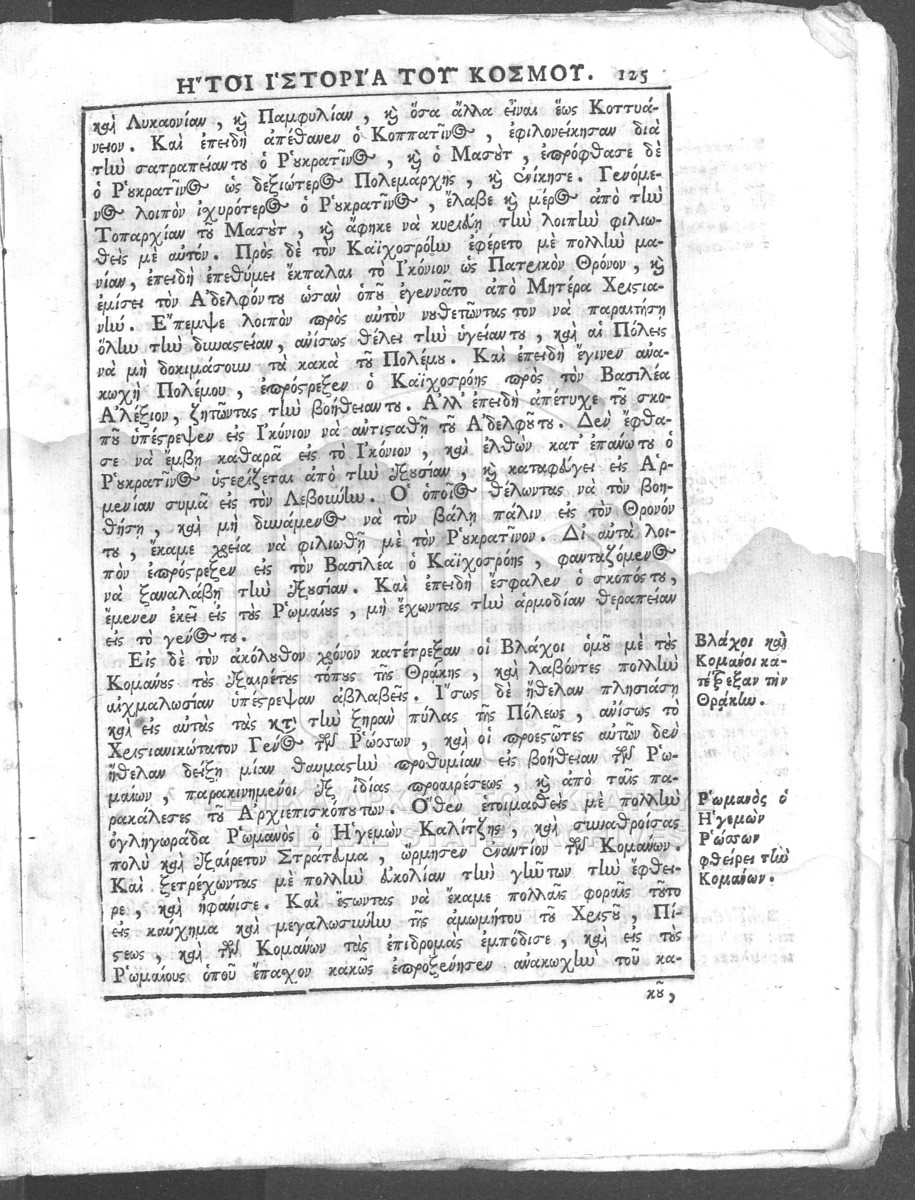 Η῎ΤΟΙ Ι῾ΣΤΟΡΙ´Α ΤΟΥ͂ ΚΟΣΜΟΥ. 125
καὶ Λυκαονίαν, καὶ Παμφυλίαν, καὶ ὅσα ἄλλα εἶναι ἕως Κοττυά-
νειον. Καὶ ἐπειδὴ ἀπέθανεν ὁ Κοππατῖνος, ἐφιλονείκησαν διὰ
τὴν σατραπείαντου ὁ Ρ῾ουκρατῖνος, καὶ ὁ Μασοὺτ, ἐπρόφθασε δὲ
ὁ Ρ῾ουκρατῖνος ὡς δεξιώτερος Πολεμαρχης, καὶ ἐνίκησε. Γενόμε-
νος λοιπὸν ἰχυρότερος ὁ Ρ῾ουκρατῖνος, ἔλαβε καὶ μέρος ἀπὸ τὴν
Τοπαρχίαν τοῦ Μασοὺτ, καὶ ἄφηκε νὰ κυριεύῃ τὴν λοιπὴν φιλιω-
θεὶς μὲ αὐτόν. Πρὸς δὲ τὸν Καϊχοσρόην ἐφέρετο μὲ πολλὴν μα-
νίαν, ἐπειδὴ ἐπεθύμει ἔκπαλαι τὸ Ι᾿κόνιον ὡς Πατρικὸν Θρόνον, καὶ
ἐμίσει τὸν Α᾿δελφόντου ὡσὰν ὁποῦ ἐγεννᾶτο ἀπὸ Μητέρα Χριστια-
νήν. Ε῎πεμψε λοιπὸν πρὸς αὐτὸν νουθετῶντας τον νὰ παραιτήσῃ
ὅλην τὴν δυναστείαν, ἀνίσως θέλει τὴν ὑγείαντου, καὶ αἱ Πόλεις
νὰ μὴ δοκιμάσουν τὰ κακὰ τοῦ Πολέμου. Καὶ ἐπειδὴ ἔγινεν ἀνα-
κωχὴ Πολέμου, ἐπρόστρεξεν ὁ Καϊχοσρόης πρὸς τὸν Βασιλέα
Α᾿λέξιον, ζητῶντας τὴν βοήθειαντου. Α᾿λλ᾿ ἐπειδὴ ἀπέτυχε τοῦ σκο-
ποῦ ὑπέστρεψεν εἰς Ι᾿κόνιον νὰ ἀντισταθῇ τοῦ Α᾿δελφοῦτου. Δὲν ἔφθα-
σε νὰ ἔμβῃ καθαρᾶ εἰς τὸ Ι᾿κόνιον, καὶ ἐλθὼν κατ᾿ ἐπάνωτου ὁ
Ρ῾ουκρατῖνος ὑστερίζεται ἀπὸ τὴν ἐξουσίαν, καὶ καταφεύγει εἰς Α᾿ρ-
μενίαν συμᾶ εἰς τὸν Λεβούνην. Ο῾ ὁποῖος θέλωντας νὰ τὸν βοη-
θήσῃ, καὶ μὴ δυνάμενος νὰ τὸν βάλῃ πάλιν εἰς τὸν Θρονόν
του, ἔκαμε χρεία νὰ φιλιωθῇ μὲ τὸν Ρ῾ουκρατῖνον. Δι᾿ αὐτὰ λοι-
πὸν ἐπρόστρεξεν εἰς τὸν Βασιλέα ὁ Καϊχοσρόης, φανταζόμενος
νὰ ξαναλάβῃ τὴν ἐξουσίαν. Καὶ ἐπειδὴ ἔσφαλεν ὁ σκοπόςτου,
ἔμενεν ἐκεῖ εἰς τοὺς Ρ῾ωμαίους, μὴ ἔχωντας τὴν ἁρμοδίαν θεραπείαν
εἰς τὸ γένος του.
Εἰς δὲ τὸν ἀκόλουθον χρόνον κατέτρεξαν οἱ Βλάχοι ὁμοῦ μὲ τοὺς
Κομανους τοὺς ἐξαιρέτους τόπους τῆς Θράκης, καὶ λαβόντες πολλὴν
αἰχμαλωσίαν ὑπέστρεψαν ἀβλαβεῖς. Ι῎σως δὲ ἤθελαν πλησιάσῃ
καὶ εἰς αὐτὰς τὰς κατὰ τὴν ξηρὰν πύλας τῆς Πόλεως, ἀνίσως τὸ
Χριστιανικώτατον Γένος τῶν Ρ῾ώσσων, καὶ οἱ προεστῶτες αὐτῶν δὲν
ἤθελαν δείξῃ μίαν θαυμαστὴν προθυμίαν εἰς βοήθειαν τῶν Ρ῾ω-
μαίων, παρακινημένοι ἐξ ἰδίας προαιρέσεως, καὶ ἀπὸ ταῖς πα-
ρακάλεσες τοῦ Α᾿ρχιεπισκόπουτων. Ο῞θεν ἑτοιμαθεὶς μὲ πολλὴν
ὀγληγωράδα Ρ῾ωμανὸς ὁ Η῾γεμὼν Καλίτζης, καὶ συναθροίσας
πολὺ καὶ ἐξαίρετον Στράτευμα, ὥρμησεν ἐναντίον τῶν Κομάνων.
Καὶ ξετρέχωντας μὲ πολλὴν εὐκολίαν τὴν γῆντων τὴν ἔφθει-
ρε, καὶ ἠφάνισε. Καὶ ἔστωντας νὰ ἔκαμε πολλαῖς φοραῖς τοῦτο
εἰς καύχημα καὶ μεγαλωσύνην τῆς ἀμωμήτου τοῦ Χριστοῦ, Πί-
στεως, καὶ τῶν Κομάνων τὰς ἐπιδρομὰς ἐμπόδισε, καὶ εἰς τοὺς
Ρ῾ωμαίους ὁποῦ ἔπαχον κακῶς ἐπροξένησεν ἀνακωχὴν τοῦ κα-
κοῦ,
Βλάχοι καὶ
Κομάνοι κα-
τέτρεξαν τὴν
Θρᾴκην.
Ρ῾ωμανὸς ὁ
Η῾γεμὼν
Ρ῾ώσσων
φθείρει τὴν
Κομάνων.